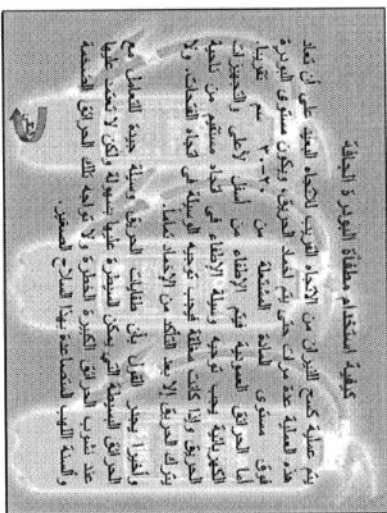 كيفية استخدام مطفأة البودرة الجافة
يتم عملية كسح النيران من الاتجاه القريب للاتجاه البعيد على أن تعاد
هذه العملية عدة مرات حتى يتم اخماد الحريق، ويكون مستوى البودرة
فوق مستوى المادة المشتعلة من ٢٠-٣٠ سم تقريبا.
أما الحرائق العمودية فيتم الإطفاء من أسفل لأعلى والتجهيزات
الكهربائية يجب توجيه وسيلة الإطفاء في اتجاه مستقيم من ناحية
الحريق وإذا كانت مغلقة فيجب توجيه الوسيلة في اتجاه الفتحات. ولا
يترك الحريق إلا بعد التأكد من الاخماد تماماً.
وأخيرا يجدر القول بأن طفايات الحريق وسيلة جيدة للتعامل مع
الحرائق البسيطة التي يمكن السيطرة عليها بسهولة ولكن لا تعتمد عليها
عند نشوب الحرائق الكبيرة الخطرة ولا تواجه تلك الحرائق الضخمة
وألسنة اللهب المتصاعدة بهذا السلاح الصغير.